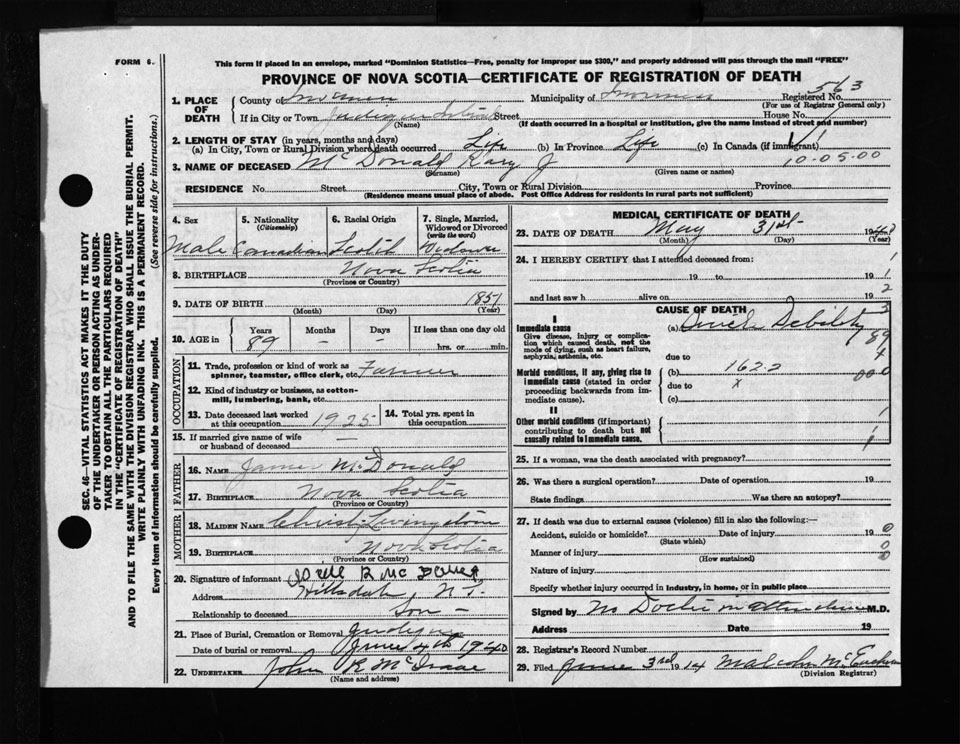 FORM 6.
This form if placed in an envelope, marked "Dominion Statistics—Free, penalty for improper use $300," and properly addressed will pass through the mail "FREE"
PROVINCE OF NOVA SCOTIA—CERTIFICATE OF REGISTRATION OF DEATH
SEC. 46—VITAL STATISTICS ACT MAKES IT THE DUTY
OF THE UNDERTAKER OR PERSON ACTING AS UNDER-
TAKER TO OBTAIN ALL THE PARTICULARS REQUIRED
IN THE "CERTIFICATE OF REGISTRATION OF DEATH"
AND TO FILE THE SAME WITH THE DIVISION REGISTRAR WHO SHALL ISSUE THE BURIAL PERMIT.
WRITE PLAINLY WITH UNFADING INK. THIS IS A PERMANENT RECORD.
Every item of Information should be carefully supplied. (See reverse side for instructions.)
1. PLACE OF DEATH County of Inverness Municipality of Inverness Registered No. 563
(For use of Registrar General only)
If in City or Town Street House No.
(Name) (If death occurred in a hospital or institution, give the name instead of street and number)
2. LENGTH OF STAY (in years, months and days)
(a) In City, Town or Rural Division where death occurred Life (b) In Province Life (c) In Canada (if immigrant)
10-05-00
3. NAME OF DECEASED McDonald J
(Surname) (Given name or names)
RESIDENCE No. Street City, Town or Rural Division Province
(Residence means usual place of abode. Post Office Address for residents in rural parts not sufficient)
4. Sex
Male
5. Nationality
(Citizenship)
Canadian
6. Racial Origin
Scotch
7. Single, Married,
Widowed or Divorced
(write the word)
Widower
8. BIRTHPLACE Nova Scotia
(Province or Country)
9. DATE OF BIRTH 1851
(Month) (Day) (Year)
10. AGE in
Years Months Days If less than one day old
89 — — hrs. or min.
OCCUPATION
11. Trade, profession or kind of work as
spinner, teamster, office clerk, etc. Farmer
12. Kind of industry or business, as cotton-
mill, lumbering, bank, etc.
13. Date deceased last worked
at this occupation 1925
14. Total yrs. spent in
this occupation
15. If married give name of wife
or husband of deceased —
FATHER
16. NAME James McDonald
17. BIRTHPLACE Nova Scotia
MOTHER
18. MAIDEN NAME Livingstone
19. BIRTHPLACE Nova Scotia
(Province or Country)
20. Signature of informant
Address Hillsdale, N.S.
Relationship to deceased Son —
21. Place of Burial, Cremation or Removal Judique
Date of burial or removal June 4th 1940
22. UNDERTAKER John R McIsaac
(Name and address)
MEDICAL CERTIFICATE OF DEATH
23. DATE OF DEATH May 31st 1940
(Month) (Day) (Year)
24. I HEREBY CERTIFY that I attended deceased from:
19 to 19
and last saw h alive on 19
1
1
2
3
89
4
000
1
1
CAUSE OF DEATH
I
Immediate cause
Give disease, injury or complica-
tion which caused death, not the
mode of dying, such as heart failure,
asphyxia, asthenia, etc.
(a) Senile Debility
due to
Morbid conditions, if any, giving rise to
immediate cause (stated in order
proceeding backwards from im-
mediate cause).
(b) 162.2
due to x
(c)
II
Other morbid conditions (if important)
contributing to death but not
causally related to immediate cause.
25. If a woman, was the death associated with pregnancy?
26. Was there a surgical operation? Date of operation 19
State findings Was there an autopsy?
27. If death was due to external causes (violence) fill in also the following:—
Accident, suicide or homicide? Date of injury 19
(State which)
Manner of injury
(How sustained)
0
0
0
Nature of injury
Specify whether injury occurred in industry, in home, or in public place
Signed by No Doctor in attendance M.D.
Address Date 19
28. Registrar's Record Number
29. Filed June 3rd 19 Malcolm
(Division Registrar)